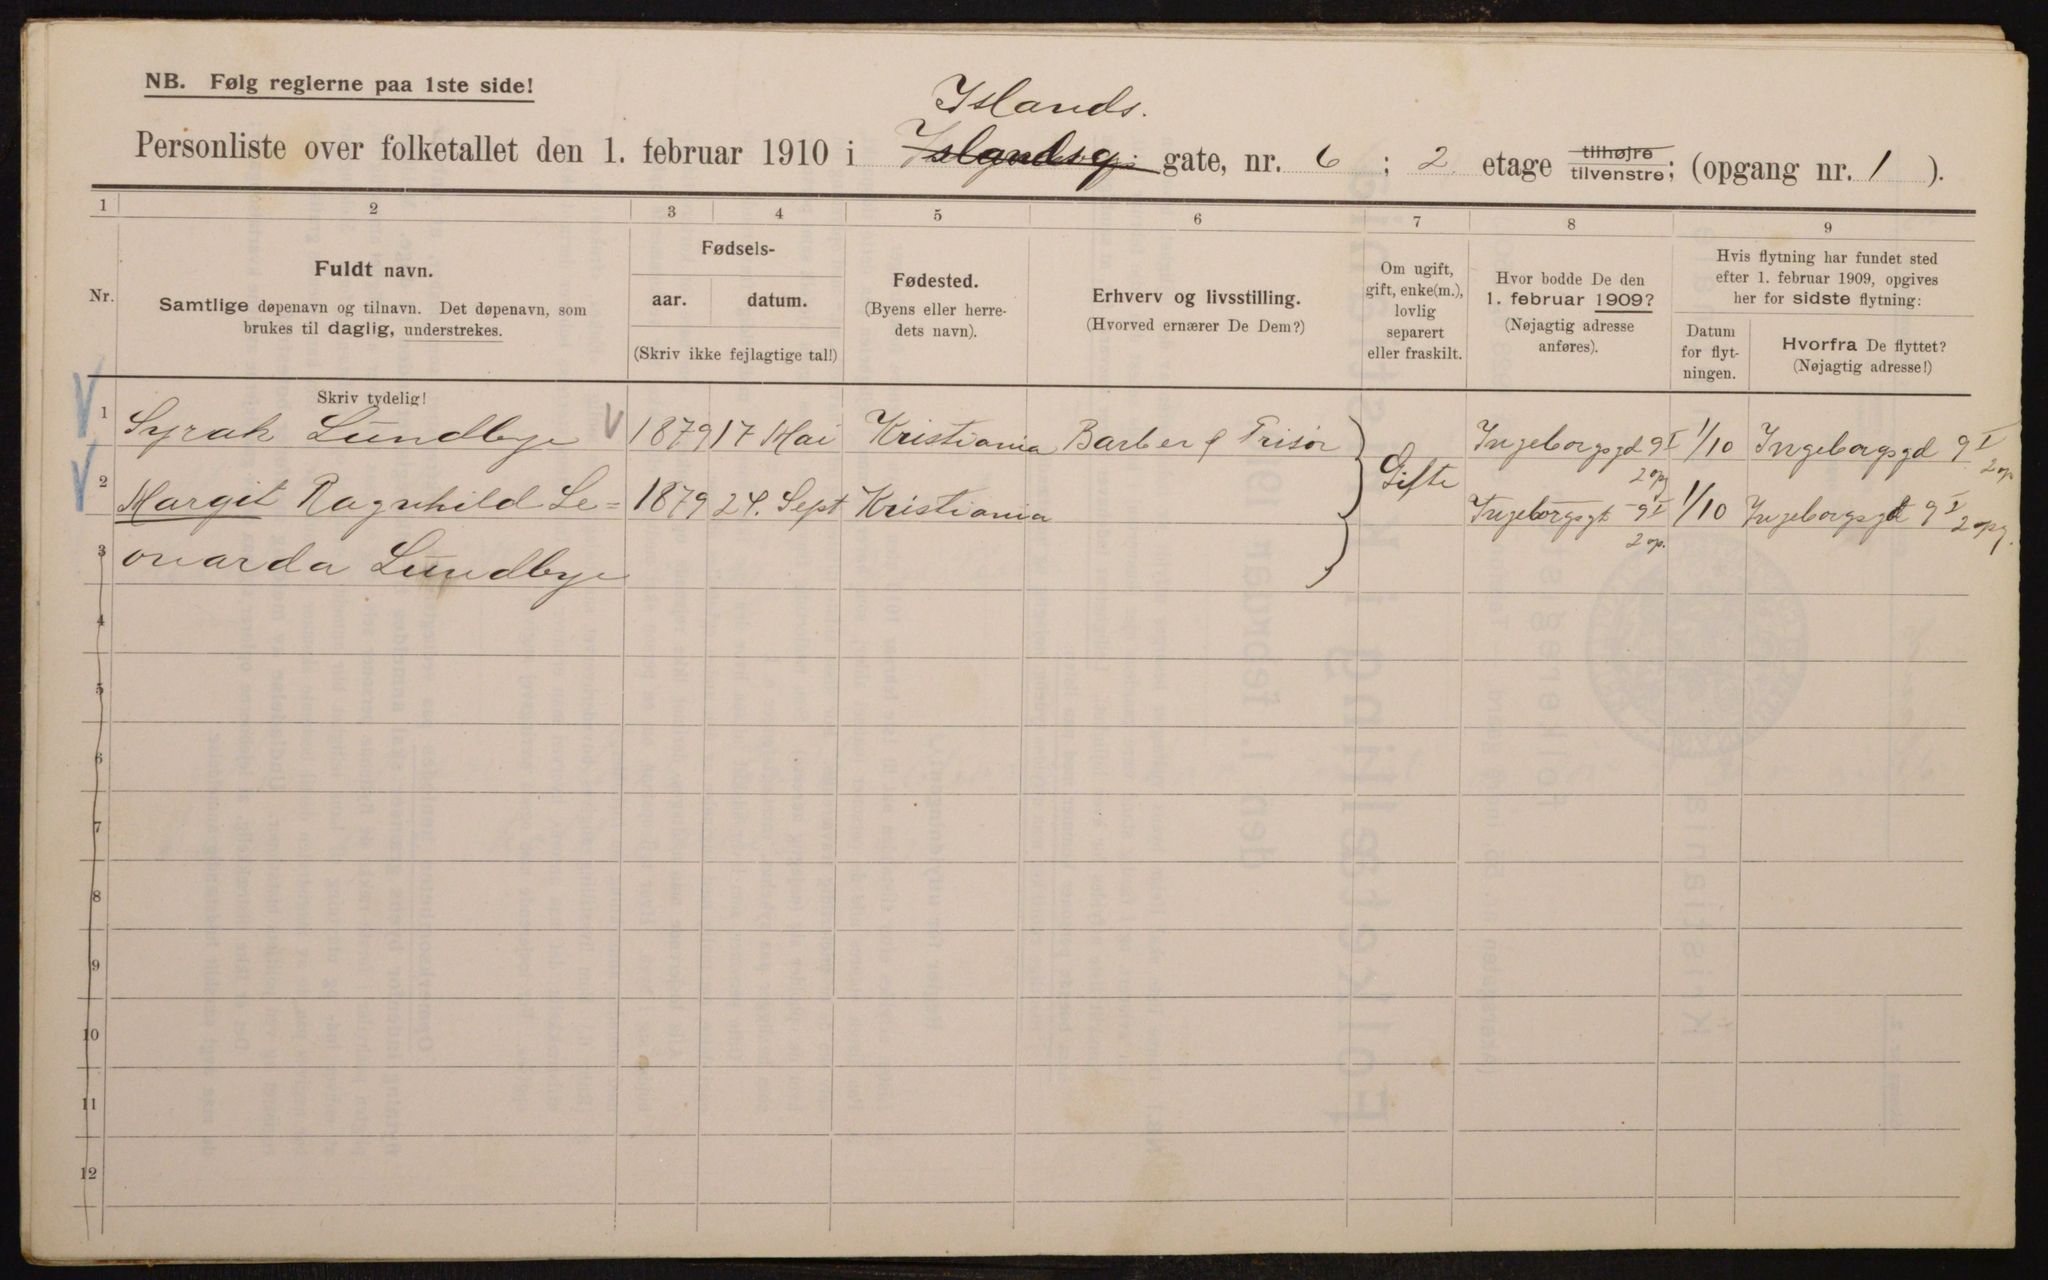 NB. Følg reglerne paa 1ste side!
Islands.
Personliste over folketallet den 1. februar 1910 i Islandsg. gate, nr. 6 ; 2 etage tilhøjre tilvenstre; (opgang nr. 1 ).
1 2 3 4 5 6 7 8 9
Nr.
Fuldt navn.
Samtlige døpenavn og tilnavn. Det døpenavn, som
brukes til daglig, understrekes.
Fødsels-
aar. datum.
(Skriv ikke fejlagtige tal!)
Fødested.
(Byens eller herre-
dets navn).
Erhverv og livsstilling.
(Hvorved ernærer De Dem?)
Om ugift,
gift, enke(m.),
lovlig
separert
eller fraskilt.
Hvor bodde De den
1. februar 1909?
(Nøjagtig adresse
anføres).
Hvis flytning har fundet sted
efter 1. februar 1909, opgives
her for sidste flytning:
Datum
for flyt-
ningen.
Hvorfra De flyttet?
(Nøjagtig adresse!)
Skriv tydelig!
1 Syrak Lundbye 1879 17 Mai Kristiania Barber & Frisør Gifte Ingeborgsgd 9 I 1/10 Ingeborgsgd 9 I
2 opg 2 op
2 Margit Ragnhild Le= 1879 24. Sept Kristiania Ingeborgsgt 9 I 1/10 Ingeborgsgt 9 I 2 opg.
2 op.
3 onarda Lundbye
4
5
6
7
8
9
10
11
12